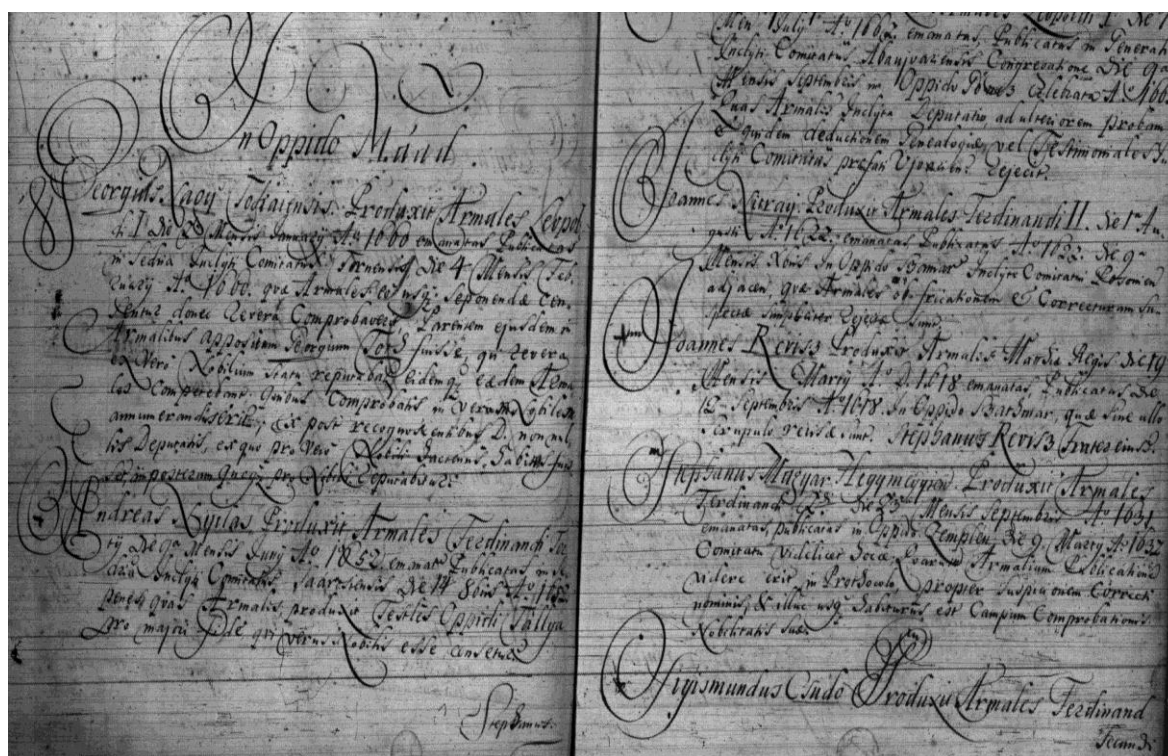 In Oppido Maad.
Georgius Nagy Todiaiensis Produxit Armales Leopol
di I De 29 Mensis January Aō 1660 emanatas Publicatas
in Sedria Inclyti Comitatus Tornensis De 4 Mensis Feb
ruary Aō 1660. quæ Armales eo usq; Seponendæ Cen
sentur donec revera Comprobaverit, Parentem ejusdem in
Armalibus appositum Georgium fuisse, qui revera
ex Vero Nobilium Statu reputabat eidemq; eædem Arma
les Competebant. quibus Comprobatis in verum Nobilem
annumerandus erit, Ex post recognoscentibus D. nonnul
lis Deputatis, ex quo pro Vero Nobili hactenus, habitus fuis
set, imposterum quoq; pro Nobili reputabitur.
Andreas Nyilas Produxit Armales Ferdinandi Ter
ty De 9a Mensis Juny Aō 1652. emanatas Publicatas in Se
dria Inclyti Comitatus De 14 8bris Aō 1652
penes quas Armales produxit Testes Oppidi Tallya
pro majori qui verus Nobilis esse Censetur.
Stephanus.
Armales Leopoldi I. De 1
Men July Aō 1662. emanatas, Publicatas in Generali
Inclyti Comitatus Abaujvariensis Congregatione Die 9a
Mensis Septembris in Oppido Celebrata Aō 166
quas Armales Inclyta Deputatio, ad ulteriorem probam
Siquidem deductionem Genealogiæ, vel Testimoniales
clyti Comitatus præsati Rejecit.
Joannes Nitray Produxit Armales Ferdinandi II. De 1a Au
gusti Aō 1622. emanatas Publicatas Aō 1623. De 9a
Mensis Xbris In Oppido Inclyto Comitatui Posonien
adjacen. quæ Armales ob fricationem & Correcturam su
spectæ simpliciter Rejectæ sunt.
Joannes Revisz Produxit Armales Mathiæ Regis De 19
Mensis Marty Aō D. 1618 emanatas, Publicatas De
12 Septembris Aō 1618. In Oppido quæ sine ullo
scrupulo revisæ sunt. Stephanus Revisz Frater eius.
Stephanus Magyar Hegymegien. Produxit Armales
Ferdinandi De 23 Mensis Septembris Aō 1631
emanatas, publicatas in Oppido Zemplen De 9 Marty Aō 1632
Comitatu videlicet hocce, quarum Armalium Publicationem
videre erit in Prothocolo, propter suspicionem Correcti
nominis, & illuc usq; habiturus est Campum Comprobationis
Nobilitatis suæ.
Sigismundus Csudo Produxit Armales Ferdinand
Secundi